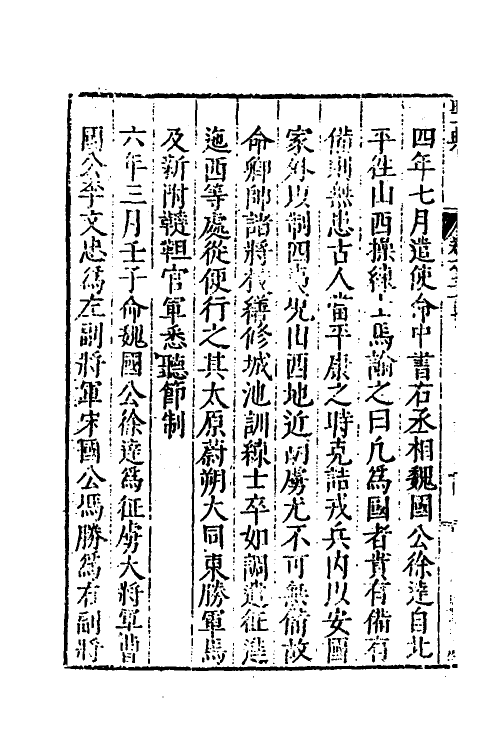 四年七月遣使命中書右丞相魏國公徐達自北
平往山西操練士馬諭之曰凡為國者貴有備有
備則無患古人當平康之時克詰戎兵內以安國
家外以制四夷況山西地近胡虜尤不可無備故
命卿帥諸將校繕修城池訓練士卒如調遣征進
迤西等處從便行之其太原蔚朔大同東勝軍馬
及新附韃靼官軍悉聽節制
六年三月壬子命魏國公徐達為征虜大將軍曹
國公李文忠為左副將軍宋國公馮勝為右副將